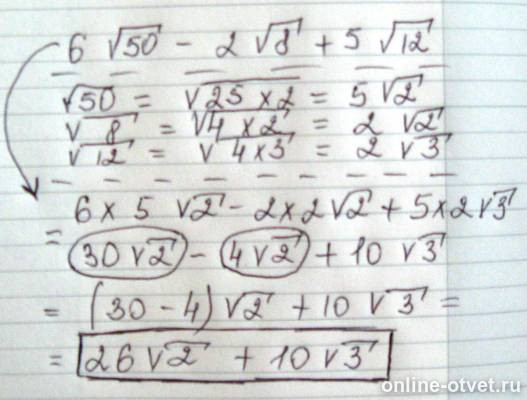 6 √50 - 2 √8 + 5 √12
√50 = √25 × 2 = 5 √2
√8 = √4 × 2 = 2 √2
√12 = √4 × 3 = 2 √3
= 6 × 5 √2 - 2 × 2 √2 + 5 × 2 √3
30 √2 - 4 √2 + 10 √3
= (30 - 4) √2 + 10 √3 =
= 26 √2 + 10 √3
online-otvet.ru